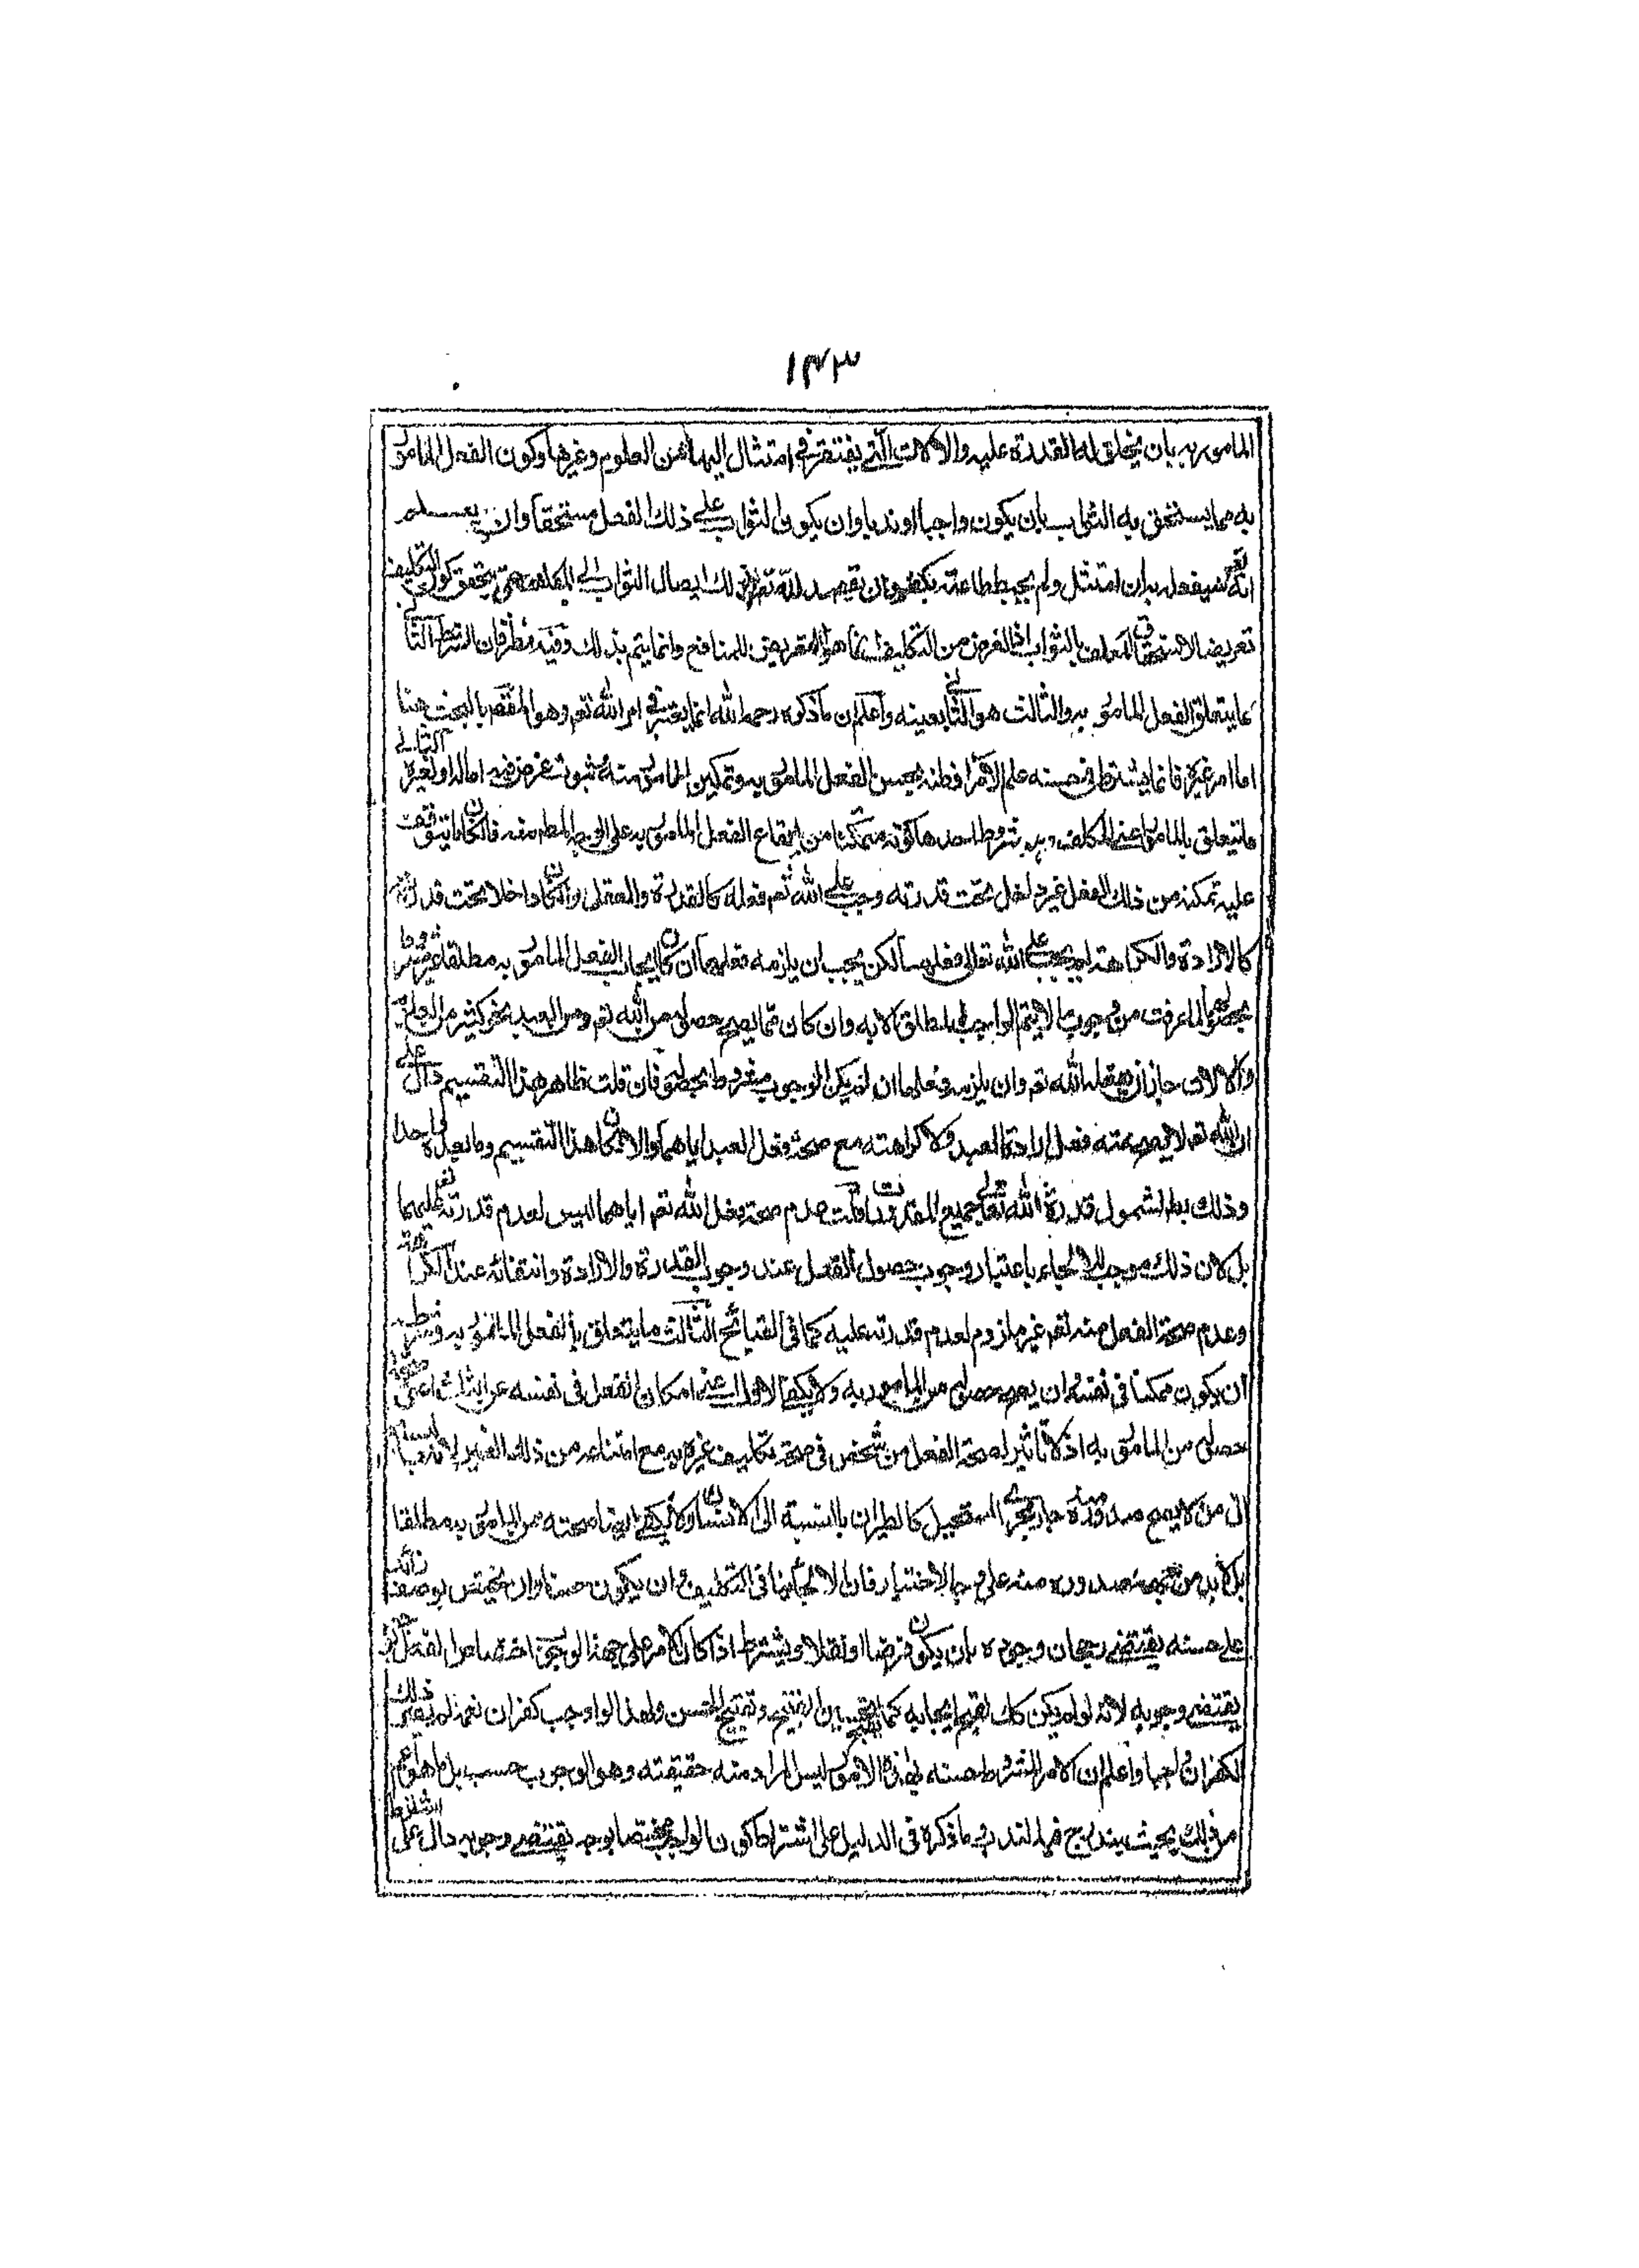 ١٤٣
المامور به بان يخلق له القدرة عليه والالات التي يفتقر في امتثال اليها من العلوم وغيرها وكون الفعل المامور
به مما يستحق به الثواب بان يكون واجبا او ندبا وان يكون الثواب على ذلك الفعل مستحقا وان يعلم
انه تع سيفعله به ان امتثل ولم يحبط طاعته بكفر وان يقصد لله تع بذلك ايصال الثواب الى المكلف حتى يتحقق كون التكليف
تعريضا لاستحقاق المكلف بالثواب اذ الغرض من التكليف انما هو التعريض للمنافع وانما يتم بذلك وفيه نظر فان الشرط الثاني
مما يتعلق بالفعل المامور به والثالث هو الثاني بعينه واعلم ان ما ذكره رحمه الله انما يعتبر في امر الله تع وهو المقصم بالبحث هنا
اما امر غيره فانما يشترط في حسنه علم الامر او ظنه بحسن الفعل المامور به وتمكين المامور منه وثبوت غرض فيه اما له او لغيره الثاني
ما يتعلق بالمامور اعني المكلف وهو شروط احدها كونه متمكنا من ايقاع الفعل المامور به على الوجه المط منه فان كان ما يتوقف
عليه تمكنه من ذلك الفعل غير داخل تحت قدرته وجب على الله تع فعله كالقدرة والعقل وان كان داخلا تحت قدرته
كالارادة والكراهة لم يجب على الله تعالى فعلهما لكن يجب ان يلزمه فعلهما ان كان ايجاب الفعل المامور به مطلقا غير مشروط
بحصولهما لما عرفت من وجوب ما لا يتم الواجب المطلق الا به وان كان مما يصح حصوله من الله تع ومن العبد نحو كثير من العلوم
والالات جاز ان يفعله الله تع وان يلزمه فعلها ان لم يكن الوجوب مشروطا بحصوله فان قلت ظاهر هذا التقسيم دال على
ان الله تع لا يصح منه فعل ارادة العبد ولا كراهته مع صحة فعل العبد اياهما والا لكان هذا التقسيم وما بعده واحدا
وذلك بط لشمول قدرة الله تعالى جميع المقدورات قلت عدم صحة فعل الله تع اياهما ليس لعدم قدرته تع عليهما
بل لان ذلك موجب للالجاء باعتبار وجوب حصول الفعل عند وجوب القدرة والارادة وانتفائه عند الكراهة
وعدم صحة الفعل منه تع غير ملزوم لعدم قدرته عليه كما في القبائح الثالث ما يتعلق بالفعل المامور به وشرطه
ان يكون ممكنا في نفسه وان يصح حصوله من المامور به ولا يكفي الاول اعني امكان الفعل في نفسه عن الثاني اعني صحة
حصوله من المامور به اذ لا تاثير لصحة الفعل من شخص في صحة تكليف غيره به مع امتناعه من ذلك الغير لانه بالنسبة
الى من لا يصح صدوره منه جار مجرى المستحيل كالطيران بالنسبة الى الانسان ولا يكفي ايضا صحته من المامور به مطلقا
بل لا بد من صحة صدوره منه على وجه الاختيار فان الالجاء ينافي التكليف وان يكون حسنا وان يختص بوصف زائد
على حسنه يقتضي رجحان وجوده بان يكون فرضا او نفلا ويشترط اذا كان الامر على جهة الوجوب اختصاص الفعل بوجه
يقتضي وجوبه لانه لو لم يكن كك لقبح ايجابه كما يقبح تحسين القبيح وتقبيح الحسن ولهذا لو اوجب كفران نعمة لم يقتض ذلك
الكفران واجبا واعلم ان الامر المشروط حسنه بهذه الامور ليس المراد منه حقيقته وهو الوجوب حسب بل ما هو اعم
من ذلك بحيث يندرج فيه الندب وما ذكره في الدليل على اشتراط كون الواجب مختصا بوجه يقتضي وجوبه دال على اشتراط